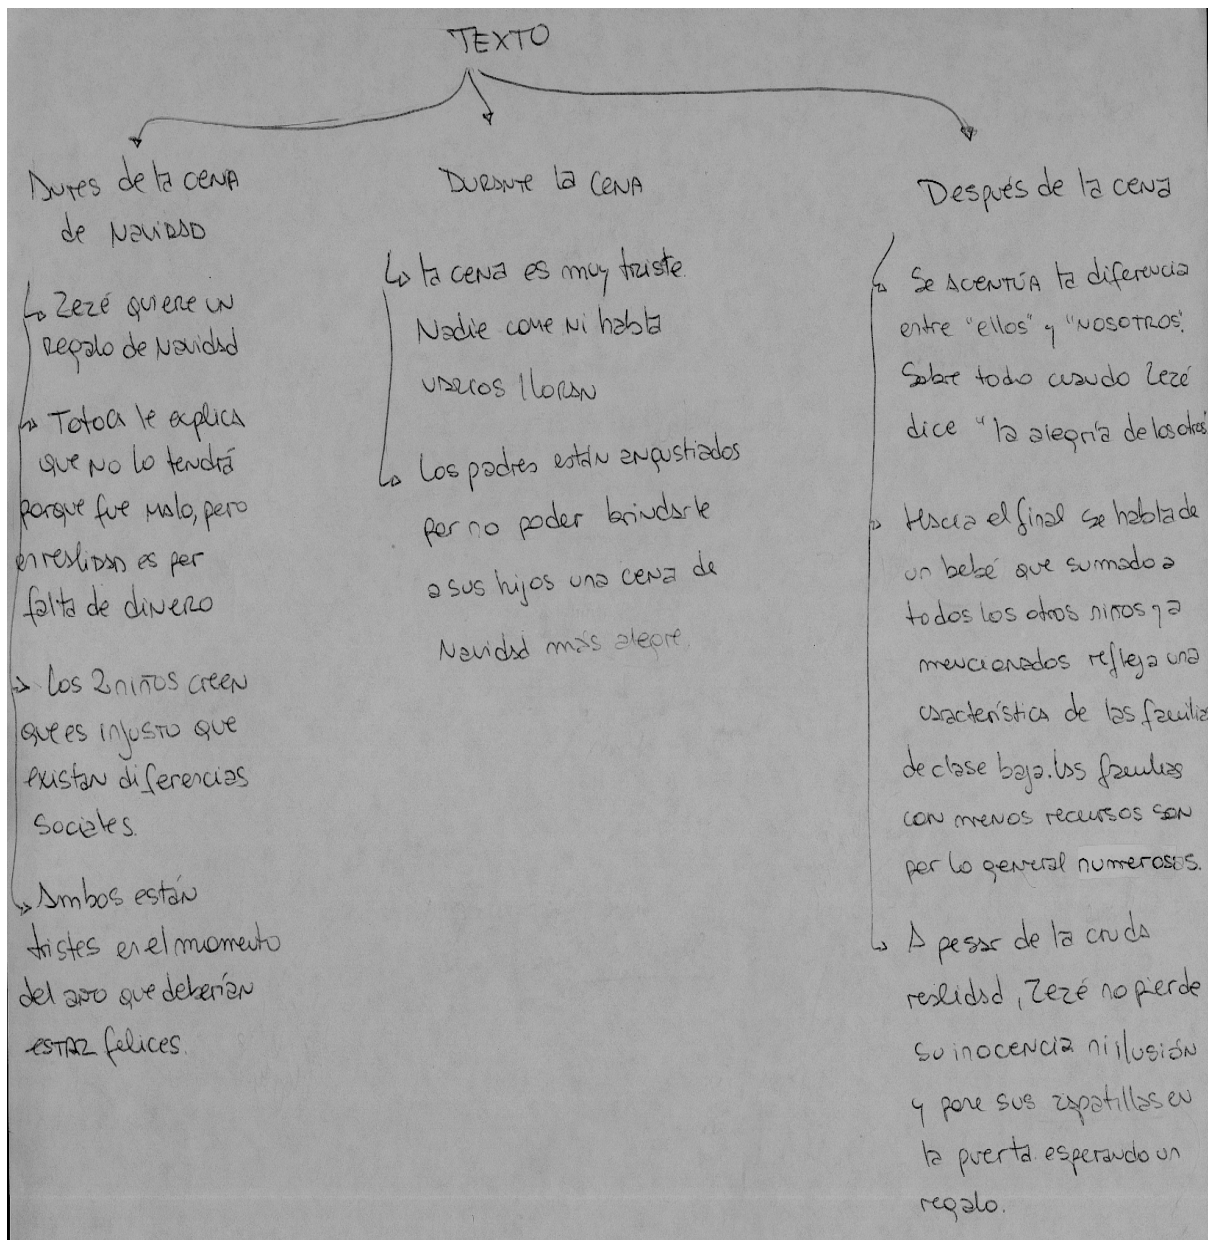 TEXTO
Antes de la cena
de Navidad
↳ Zezé quiere un
regalo de Navidad
↳ Totoca le explica
que no lo tendrá
porque fue malo, pero
en realidad es por
falta de dinero
↳ Los 2 niños creen
que es injusto que
existan diferencias
sociales.
↳ Ambos están
tristes en el momento
del año que deberían
estar felices.
Durante la cena
↳ la cena es muy triste.
Nadie come ni habla
varios lloran
↳ Los padres están angustiados
por no poder brindarle
a sus hijos una cena de
Navidad más alegre.
Después de la cena
↳ Se acentúa la diferencia
entre "ellos" y "nosotros".
Sobre todo cuando Zezé
dice "la alegría de los otros"
↳ Hacia el final se habla de
un bebé que sumado a
todos los otros niños ya
mencionados refleja una
característica de las familia
de clase baja. Las familias
con menos recursos son
por lo general numerosos.
↳ A pesar de la cruda
realidad, Zezé no pierde
su inocencia ni ilusión
y pone sus zapatillas en
la puerta esperando un
regalo.